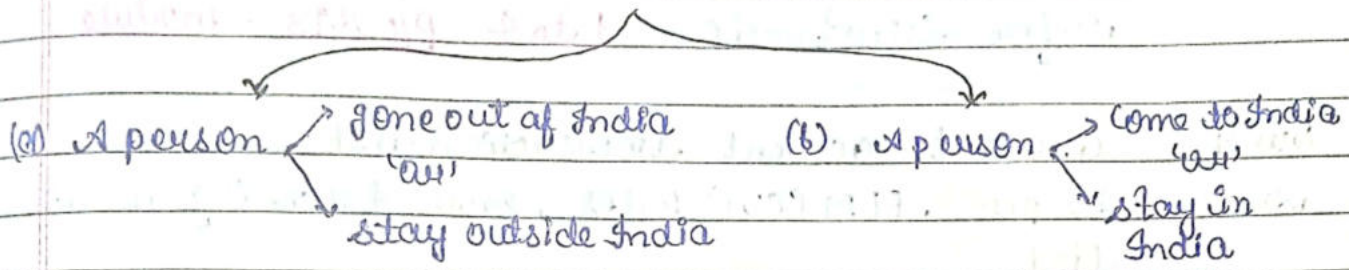 (a) A person gone out of India
'or'
stay outside India
(b) A person come to India
'or'
stay in
India